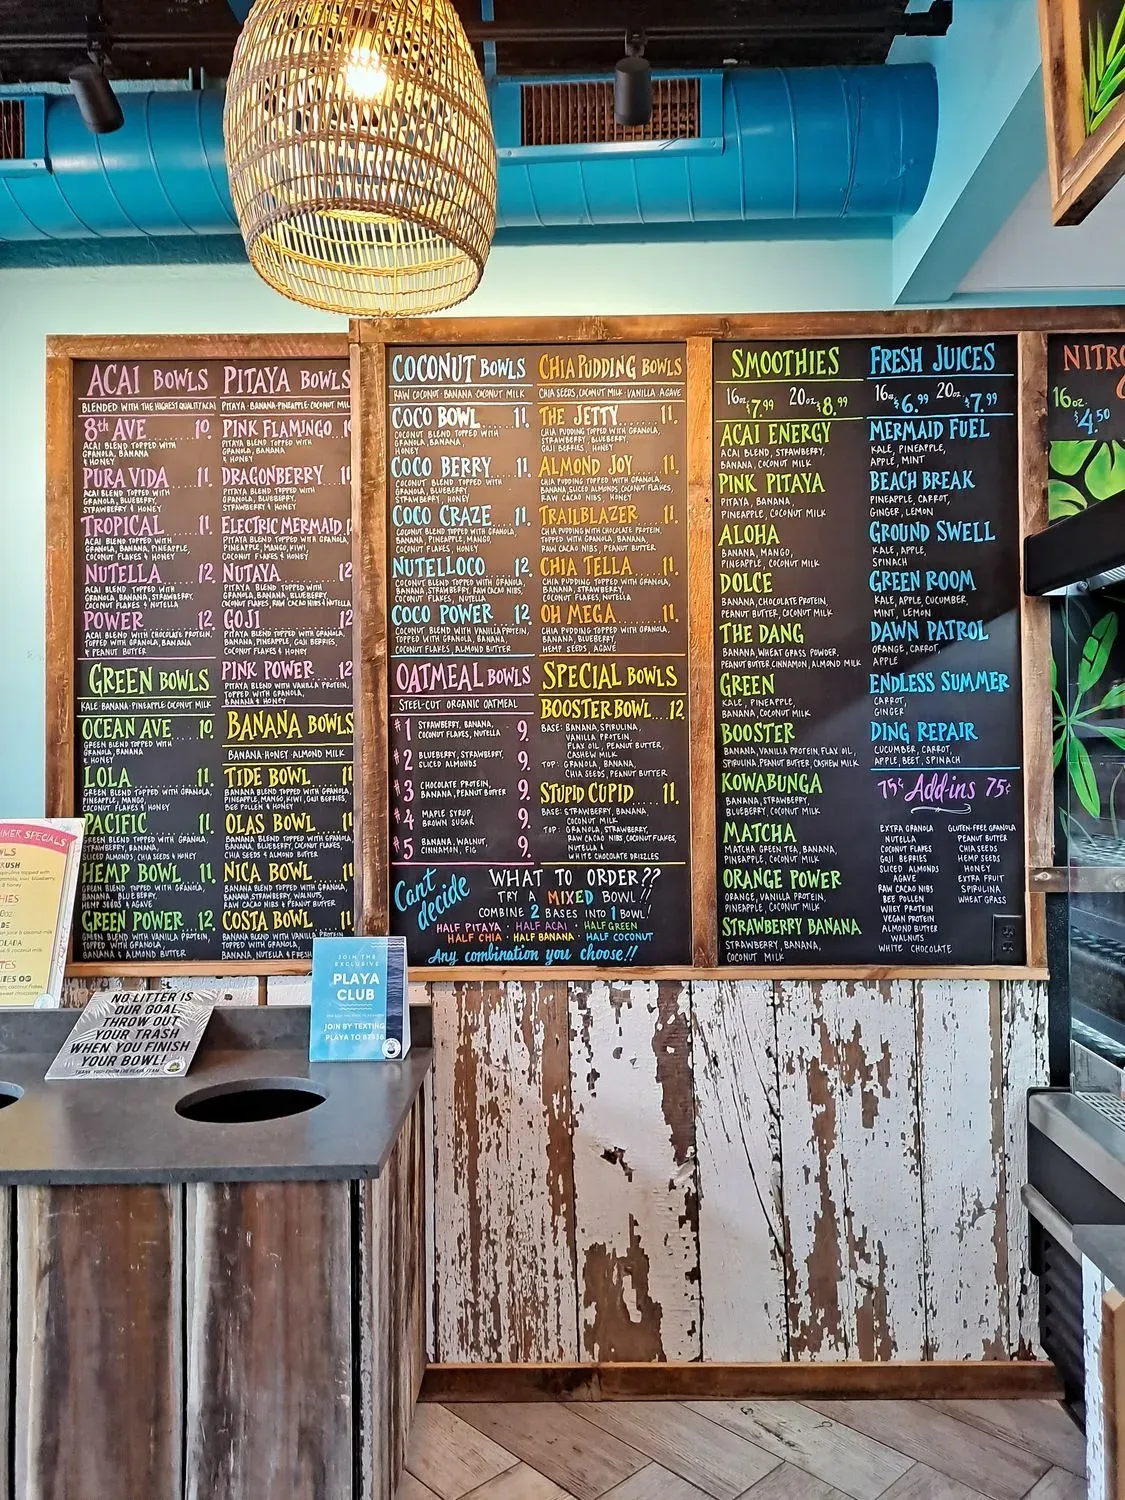 ACAI BOWLS
BLENDED WITH THE HIGHEST QUALITY ACAI
8th AVE 10.
ACAI BLEND TOPPED WITH
GRANOLA, BANANA
& HONEY
PURA VIDA 11.
ACAI BLEND TOPPED WITH
GRANOLA, BLUEBERRY,
STRAWBERRY & HONEY
TROPICAL 11.
ACAI BLEND TOPPED WITH
GRANOLA, BANANA, PINEAPPLE,
COCONUT FLAKES & HONEY
NUTELLA 12.
ACAI BLEND TOPPED WITH
GRANOLA, BANANA, STRAWBERRY,
COCONUT FLAKES & NUTELLA
POWER 12.
ACAI BLEND WITH CHOCOLATE PROTEIN,
TOPPED WITH GRANOLA, BANANA
& PEANUT BUTTER
GREEN BOWLS
KALE·BANANA·PINEAPPLE·COCONUT MILK
OCEAN AVE 10.
GREEN BLEND TOPPED WITH
GRANOLA, BANANA
& HONEY
LOLA 11.
GREEN BLEND TOPPED WITH GRANOLA,
PINEAPPLE, MANGO,
COCONUT FLAKES & HONEY
PACIFIC 11.
GREEN BLEND TOPPED WITH GRANOLA,
STRAWBERRY,
SLICED ALMONDS, CHIA SEEDS & HONEY
HEMP BOWL 11.
GREEN BLEND TOPPED WITH GRANOLA,
BANANA, BLUEBERRY,
HEMP SEEDS & HONEY
GREEN POWER 12.
GREEN BLEND WITH VANILLA PROTEIN,
TOPPED WITH GRANOLA,
BANANA & ALMOND BUTTER
PITAYA BOWLS
PITAYA·BANANA·PINEAPPLE·COCONUT MIL
PINK FLAMINGO
PITAYA BLEND TOPPED WITH
GRANOLA, BANANA
& HONEY
DRAGONBERRY
PITAYA BLEND TOPPED WITH
GRANOLA, BLUEBERRY,
STRAWBERRY & HONEY
ELECTRIC MERMAID
PITAYA BLEND TOPPED WITH GRANOLA,
PINEAPPLE, MANGO, KIWI,
COCONUT FLAKES & HONEY
NUTAYA 12
PITAYA BLEND TOPPED WITH
GRANOLA, BANANA, BLUEBERRY,
COCONUT FLAKES, RAW CACAO NIBS & NUTELLA
GOJI 12
PITAYA BLEND TOPPED WITH GRANOLA,
BANANA, PINEAPPLE, GOJI BERRIES,
COCONUT FLAKES & HONEY
PINK POWER 12
PITAYA BLEND WITH VANILLA PROTEIN,
TOPPED WITH GRANOLA,
BANANA & HONEY
BANANA BOWLS
BANANA·HONEY·ALMOND MILK
TIDE BOWL 11
BANANA BLEND TOPPED WITH GRANOLA,
PINEAPPLE, MANGO, KIWI, GOJI BERRIES,
BEE POLLEN & HONEY
OLAS BOWL 11
BANANA BLEND TOPPED WITH GRANOLA,
BANANA, BLUEBERRY, COCONUT FLAKES,
CHIA SEEDS & ALMOND BUTTER
NICA BOWL 11
BANANA BLEND TOPPED WITH GRANOLA,
BANANA, STRAWBERRY, WALNUTS,
RAW CACAO NIBS & PEANUT BUTTER
COSTA BOWL 11
BANANA BLEND WITH VANILLA PROTEIN
TOPPED WITH GRANOLA,
BANANA, NUTELLA & FRESH
COCONUT BOWLS
RAW COCONUT·BANANA·COCONUT MILK
COCO BOWL 11.
COCONUT BLEND TOPPED WITH
GRANOLA, BANANA,
HONEY
COCO BERRY 11.
COCONUT BLEND TOPPED WITH
GRANOLA, BLUEBERRY,
STRAWBERRY, HONEY
COCO CRAZE 11.
COCONUT BLEND TOPPED WITH GRANOLA,
BANANA, PINEAPPLE, MANGO,
COCONUT FLAKES, HONEY
NUTELLOCO 12.
COCONUT BLEND TOPPED WITH GRANOLA,
BANANA, STRAWBERRY, RAW CACAO NIBS,
COCONUT FLAKES, NUTELLA
COCO POWER 12.
COCONUT BLEND WITH VANILLA PROTEIN,
TOPPED WITH GRANOLA, BANANA,
COCONUT FLAKES, ALMOND BUTTER
OATMEAL BOWLS
STEEL-CUT ORGANIC OATMEAL
#1 STRAWBERRY, BANANA,
COCONUT FLAKES, NUTELLA 9.
#2 BLUEBERRY, STRAWBERRY,
SLICED ALMONDS 9.
#3 CHOCOLATE PROTEIN,
BANANA, PEANUT BUTTER 9.
#4 MAPLE SYRUP,
BROWN SUGAR 9.
#5 BANANA, WALNUT,
CINNAMON, FIG 9.
CHIA PUDDING BOWLS
CHIA SEEDS, COCONUT MILK·VANILLA, AGAVE
THE JETTY 11.
CHIA PUDDING TOPPED WITH GRANOLA,
STRAWBERRY, BLUEBERRY,
GOJI BERRIES, HONEY
ALMOND JOY 11.
CHIA PUDDING TOPPED WITH GRANOLA,
BANANA SLICED ALMONDS, COCONUT FLAKES,
RAW CACAO NIBS, HONEY
TRAILBLAZER 11.
CHIA PUDDING WITH CHOCOLATE PROTEIN,
TOPPED WITH GRANOLA, BANANA,
RAW CACAO NIBS, PEANUT BUTTER
CHIA TELLA 11.
CHIA PUDDING TOPPED WITH GRANOLA,
BANANA, STRAWBERRY,
COCONUT FLAKES, NUTELLA
OH MEGA 11.
CHIA PUDDING TOPPED WITH GRANOLA,
BANANA, BLUEBERRY,
HEMP SEEDS, AGAVE
SPECIAL BOWLS
BOOSTER BOWL 12.
BASE: BANANA, SPIRULINA,
VANILLA PROTEIN,
FLAX OIL, PEANUT BUTTER,
CASHEW MILK
TOP: GRANOLA, BANANA,
CHIA SEEDS, PEANUT BUTTER
STUPID CUPID 11.
BASE: STRAWBERRY, BANANA,
COCONUT MILK
TOP: GRANOLA, STRAWBERRY,
RAW CACAO NIBS, COCONUT FLAKES,
NUTELLA &
WHITE CHOCOLATE DRIZZLES
Can't decide WHAT TO ORDER??
TRY A MIXED BOWL!!
COMBINE 2 BASES INTO 1 BOWL!
HALF PITAYA · HALF ACAI · HALF GREEN
HALF CHIA · HALF BANANA · HALF COCONUT
Any combination you choose!!
SMOOTHIES
16oz. $7.99 20oz. $8.99
ACAI ENERGY
ACAI BLEND, STRAWBERRY,
BANANA, COCONUT MILK
PINK PITAYA
PITAYA, BANANA,
PINEAPPLE, COCONUT MILK
ALOHA
BANANA, MANGO,
PINEAPPLE, COCONUT MILK
DOLCE
BANANA, CHOCOLATE PROTEIN,
PEANUT BUTTER, COCONUT MILK
THE DANG
BANANA, WHEAT GRASS POWDER,
PEANUT BUTTER CINNAMON, ALMOND MILK
GREEN
KALE, PINEAPPLE,
BANANA, COCONUT MILK
BOOSTER
BANANA, VANILLA PROTEIN, FLAX OIL,
SPIRULINA, PEANUT BUTTER, CASHEW MILK
KOWABUNGA
BANANA, STRAWBERRY,
BLUEBERRY, COCONUT MILK
MATCHA
MATCHA GREEN TEA, BANANA,
PINEAPPLE, COCONUT MILK
ORANGE POWER
ORANGE, VANILLA PROTEIN,
PINEAPPLE, COCONUT MILK
STRAWBERRY BANANA
STRAWBERRY, BANANA,
COCONUT MILK
FRESH JUICES
16oz. $6.99 20oz. $7.99
MERMAID FUEL
KALE, PINEAPPLE,
APPLE, MINT
BEACH BREAK
PINEAPPLE, CARROT,
GINGER, LEMON
GROUND SWELL
KALE, APPLE,
SPINACH
GREEN ROOM
KALE, APPLE, CUCUMBER,
MINT, LEMON
DAWN PATROL
ORANGE, CARROT,
APPLE
ENDLESS SUMMER
CARROT,
GINGER
DING REPAIR
CUCUMBER, CARROT,
APPLE, BEET, SPINACH
75¢ Add-ins 75¢
EXTRA GRANOLA
NUTELLA
COCONUT FLAKES
GOJI BERRIES
SLICED ALMONDS
AGAVE
RAW CACAO NIBS
BEE POLLEN
WHEY PROTEIN
VEGAN PROTEIN
ALMOND BUTTER
WALNUTS
WHITE CHOCOLATE
GLUTEN-FREE GRANOLA
PEANUT BUTTER
CHIA SEEDS
HEMP SEEDS
HONEY
EXTRA FRUIT
SPIRULINA
WHEAT GRASS
NITRO
16oz.
$4.50
MER SPECIALS
NO LITTER IS
OUR GOAL
THROW OUT
YOUR TRASH
WHEN YOU FINISH
YOUR BOWL!
JOIN THE
EXCLUSIVE
PLAYA
CLUB
JOIN BY TEXTING
PLAYA TO